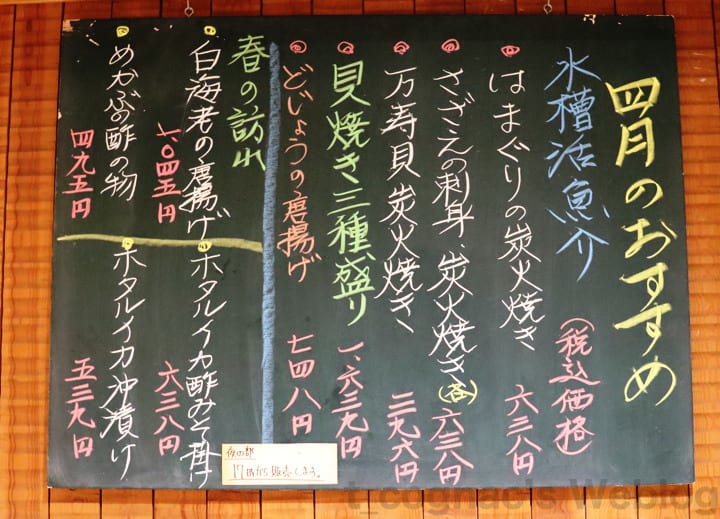 四月のおすすめ
水槽活魚介
(税込価格)
はまぐりの炭火焼き
六三八円
さざえの刺身、炭火焼き(各)
六三八円
万寿貝炭火焼き
二九六円
貝焼き三種盛り
一、六三九円
どじょうの唐揚げ
七四八円
春の訪れ
白海老の唐揚げ
一、〇四五円
ホタルイカ酢みそ掛け
六三八円
めかぶの酢の物
四九五円
ホタルイカ沖漬け
五三九円
夜の部
17時から販売します。
t_cognac's Weblog